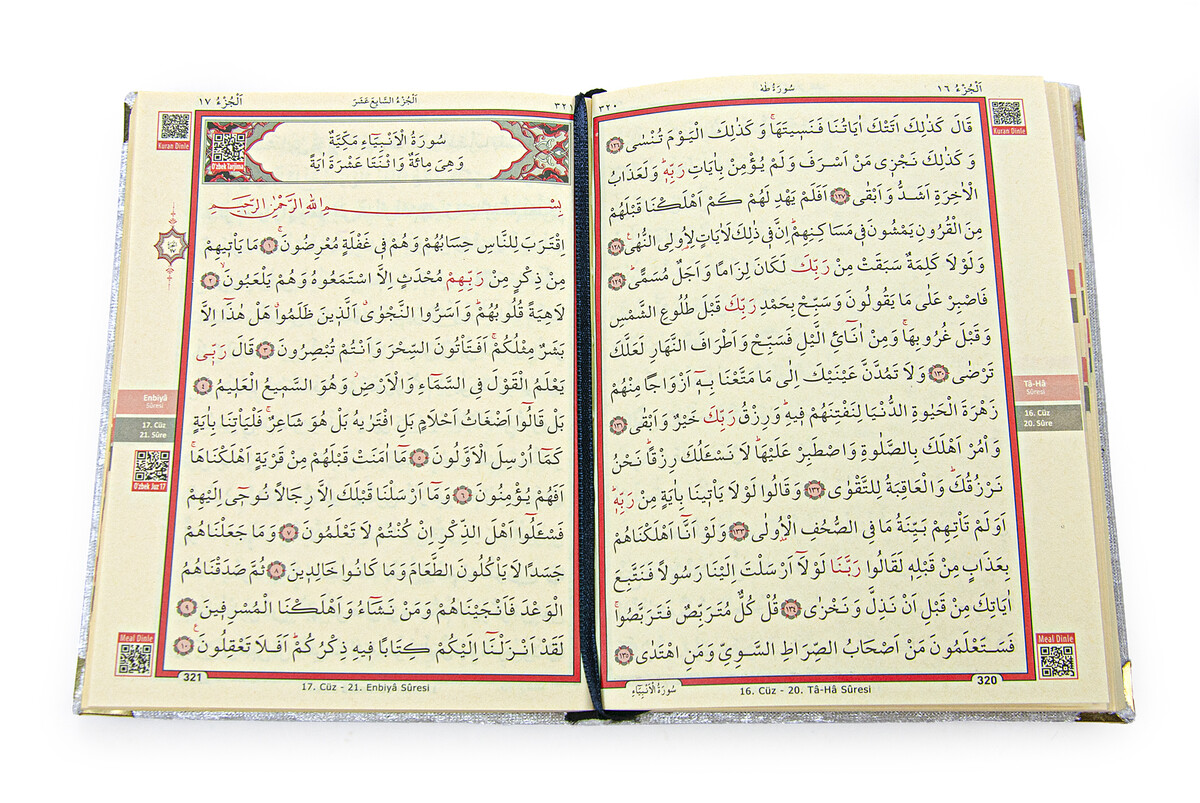 اَلْجُزْءُ ١٦
سُورَةُ طٰهٰ
٣٢٠
Kuran Dinle
قَالَ كَذٰلِكَ اَتَتْكَ اٰيَاتُنَا فَنَسٖيتَهَاۚ وَكَذٰلِكَ الْيَوْمَ تُنْسٰى ﴿١٢٦﴾
وَكَذٰلِكَ نَجْزٖى مَنْ اَسْرَفَ وَلَمْ يُؤْمِنْ بِاٰيَاتِ رَبِّهٖۜ وَلَعَذَابُ
الْاٰخِرَةِ اَشَدُّ وَاَبْقٰى ﴿١٢٧﴾ اَفَلَمْ يَهْدِ لَهُمْ كَمْ اَهْلَكْنَا قَبْلَهُمْ
مِنَ الْقُرُونِ يَمْشُونَ فٖى مَسَاكِنِهِمْۜ اِنَّ فٖى ذٰلِكَ لَاٰيَاتٍ لِاُولِى النُّهٰى ﴿١٢٨﴾
وَلَوْلَا كَلِمَةٌ سَبَقَتْ مِنْ رَبِّكَ لَكَانَ لِزَامًا وَاَجَلٌ مُسَمًّىۜ ﴿١٢٩﴾
فَاصْبِرْ عَلٰى مَا يَقُولُونَ وَسَبِّحْ بِحَمْدِ رَبِّكَ قَبْلَ طُلُوعِ الشَّمْسِ
وَقَبْلَ غُرُوبِهَاۚ وَمِنْ اٰنَٓائِ الَّيْلِ فَسَبِّحْ وَاَطْرَافَ النَّهَارِ لَعَلَّكَ
تَرْضٰى ﴿١٣٠﴾ وَلَا تَمُدَّنَّ عَيْنَيْكَ اِلٰى مَا مَتَّعْنَا بِهٖٓ اَزْوَاجًا مِنْهُمْ
زَهْرَةَ الْحَيٰوةِ الدُّنْيَا لِنَفْتِنَهُمْ فٖيهِۜ وَرِزْقُ رَبِّكَ خَيْرٌ وَاَبْقٰى ﴿١٣١﴾
وَأْمُرْ اَهْلَكَ بِالصَّلٰوةِ وَاصْطَبِرْ عَلَيْهَاۜ لَا نَسْـَٔلُكَ رِزْقًاۜ نَحْنُ
نَرْزُقُكَۜ وَالْعَاقِبَةُ لِلتَّقْوٰى ﴿١٣٢﴾ وَقَالُوا لَوْلَا يَأْتٖينَا بِاٰيَةٍ مِنْ رَبِّهٖۜ
اَوَلَمْ تَأْتِهِمْ بَيِّنَةُ مَا فِى الصُّحُفِ الْاُولٰى ﴿١٣٣﴾ وَلَوْ اَنَّٓا اَهْلَكْنَاهُمْ
بِعَذَابٍ مِنْ قَبْلِهٖ لَقَالُوا رَبَّنَا لَوْلَٓا اَرْسَلْتَ اِلَيْنَا رَسُولًا فَنَتَّبِعَ
اٰيَاتِكَ مِنْ قَبْلِ اَنْ نَذِلَّ وَنَخْزٰى ﴿١٣٤﴾ قُلْ كُلٌّ مُتَرَبِّصٌ فَتَرَبَّصُواۚ
فَسَتَعْلَمُونَ مَنْ اَصْحَابُ الصِّرَاطِ السَّوِىِّ وَمَنِ اهْتَدٰى ﴿١٣٥﴾
Tâ-Hâ
Sûresi
16. Cüz
20. Sûre
Meal Dinle
320
16. Cüz - 20. Tâ-Hâ Sûresi
سُورَةُ الْاَنْبِيَاءِ
٣٢١
اَلْجُزْءُ السَّابِعَ عَشَرَ
اَلْجُزْءُ ١٧
Kuran Dinle
O'zbek Tarjima
سُورَةُ الْاَنْبِيَٓاءِ مَكِّيَّةٌ
وَهِىَ مِائَةٌ وَاثْنَتَا عَشْرَةَ اٰيَةً
بِسْمِ اللّٰهِ الرَّحْمٰنِ الرَّحٖيمِ
اِقْتَرَبَ لِلنَّاسِ حِسَابُهُمْ وَهُمْ فٖى غَفْلَةٍ مُعْرِضُونَۚ ﴿١﴾ مَا يَأْتٖيهِمْ
مِنْ ذِكْرٍ مِنْ رَبِّهِمْ مُحْدَثٍ اِلَّا اسْتَمَعُوهُ وَهُمْ يَلْعَبُونَۙ ﴿٢﴾
لَاهِيَةً قُلُوبُهُمْۜ وَاَسَرُّوا النَّجْوٰىۗ اَلَّذٖينَ ظَلَمُواۗ هَلْ هٰذَٓا اِلَّا
بَشَرٌ مِثْلُكُمْۚ اَفَتَأْتُونَ السِّحْرَ وَاَنْتُمْ تُبْصِرُونَ ﴿٣﴾ قَالَ رَبّٖى
يَعْلَمُ الْقَوْلَ فِى السَّمَٓاءِ وَالْاَرْضِۘ وَهُوَ السَّمٖيعُ الْعَلٖيمُ ﴿٤﴾
بَلْ قَالُٓوا اَضْغَاثُ اَحْلَامٍ بَلِ افْتَرٰيهُ بَلْ هُوَ شَاعِرٌۚ فَلْيَأْتِنَا بِاٰيَةٍ
كَمَٓا اُرْسِلَ الْاَوَّلُونَ ﴿٥﴾ مَٓا اٰمَنَتْ قَبْلَهُمْ مِنْ قَرْيَةٍ اَهْلَكْنَاهَاۚ
اَفَهُمْ يُؤْمِنُونَ ﴿٦﴾ وَمَٓا اَرْسَلْنَا قَبْلَكَ اِلَّا رِجَالًا نُوحٖٓى اِلَيْهِمْ
فَسْـَٔلُٓوا اَهْلَ الذِّكْرِ اِنْ كُنْتُمْ لَا تَعْلَمُونَ ﴿٧﴾ وَمَا جَعَلْنَاهُمْ
جَسَدًا لَا يَأْكُلُونَ الطَّعَامَ وَمَا كَانُوا خَالِدٖينَ ﴿٨﴾ ثُمَّ صَدَقْنَاهُمُ
الْوَعْدَ فَاَنْجَيْنَاهُمْ وَمَنْ نَشَٓاءُ وَاَهْلَكْنَا الْمُسْرِفٖينَ ﴿٩﴾
لَقَدْ اَنْزَلْنَٓا اِلَيْكُمْ كِتَابًا فٖيهِ ذِكْرُكُمْۜ اَفَلَا تَعْقِلُونَ۟ ﴿١٠﴾
Enbiyâ
Sûresi
17. Cüz
21. Sûre
O'zbek Juz 17
Meal Dinle
321
17. Cüz - 21. Enbiyâ Sûresi